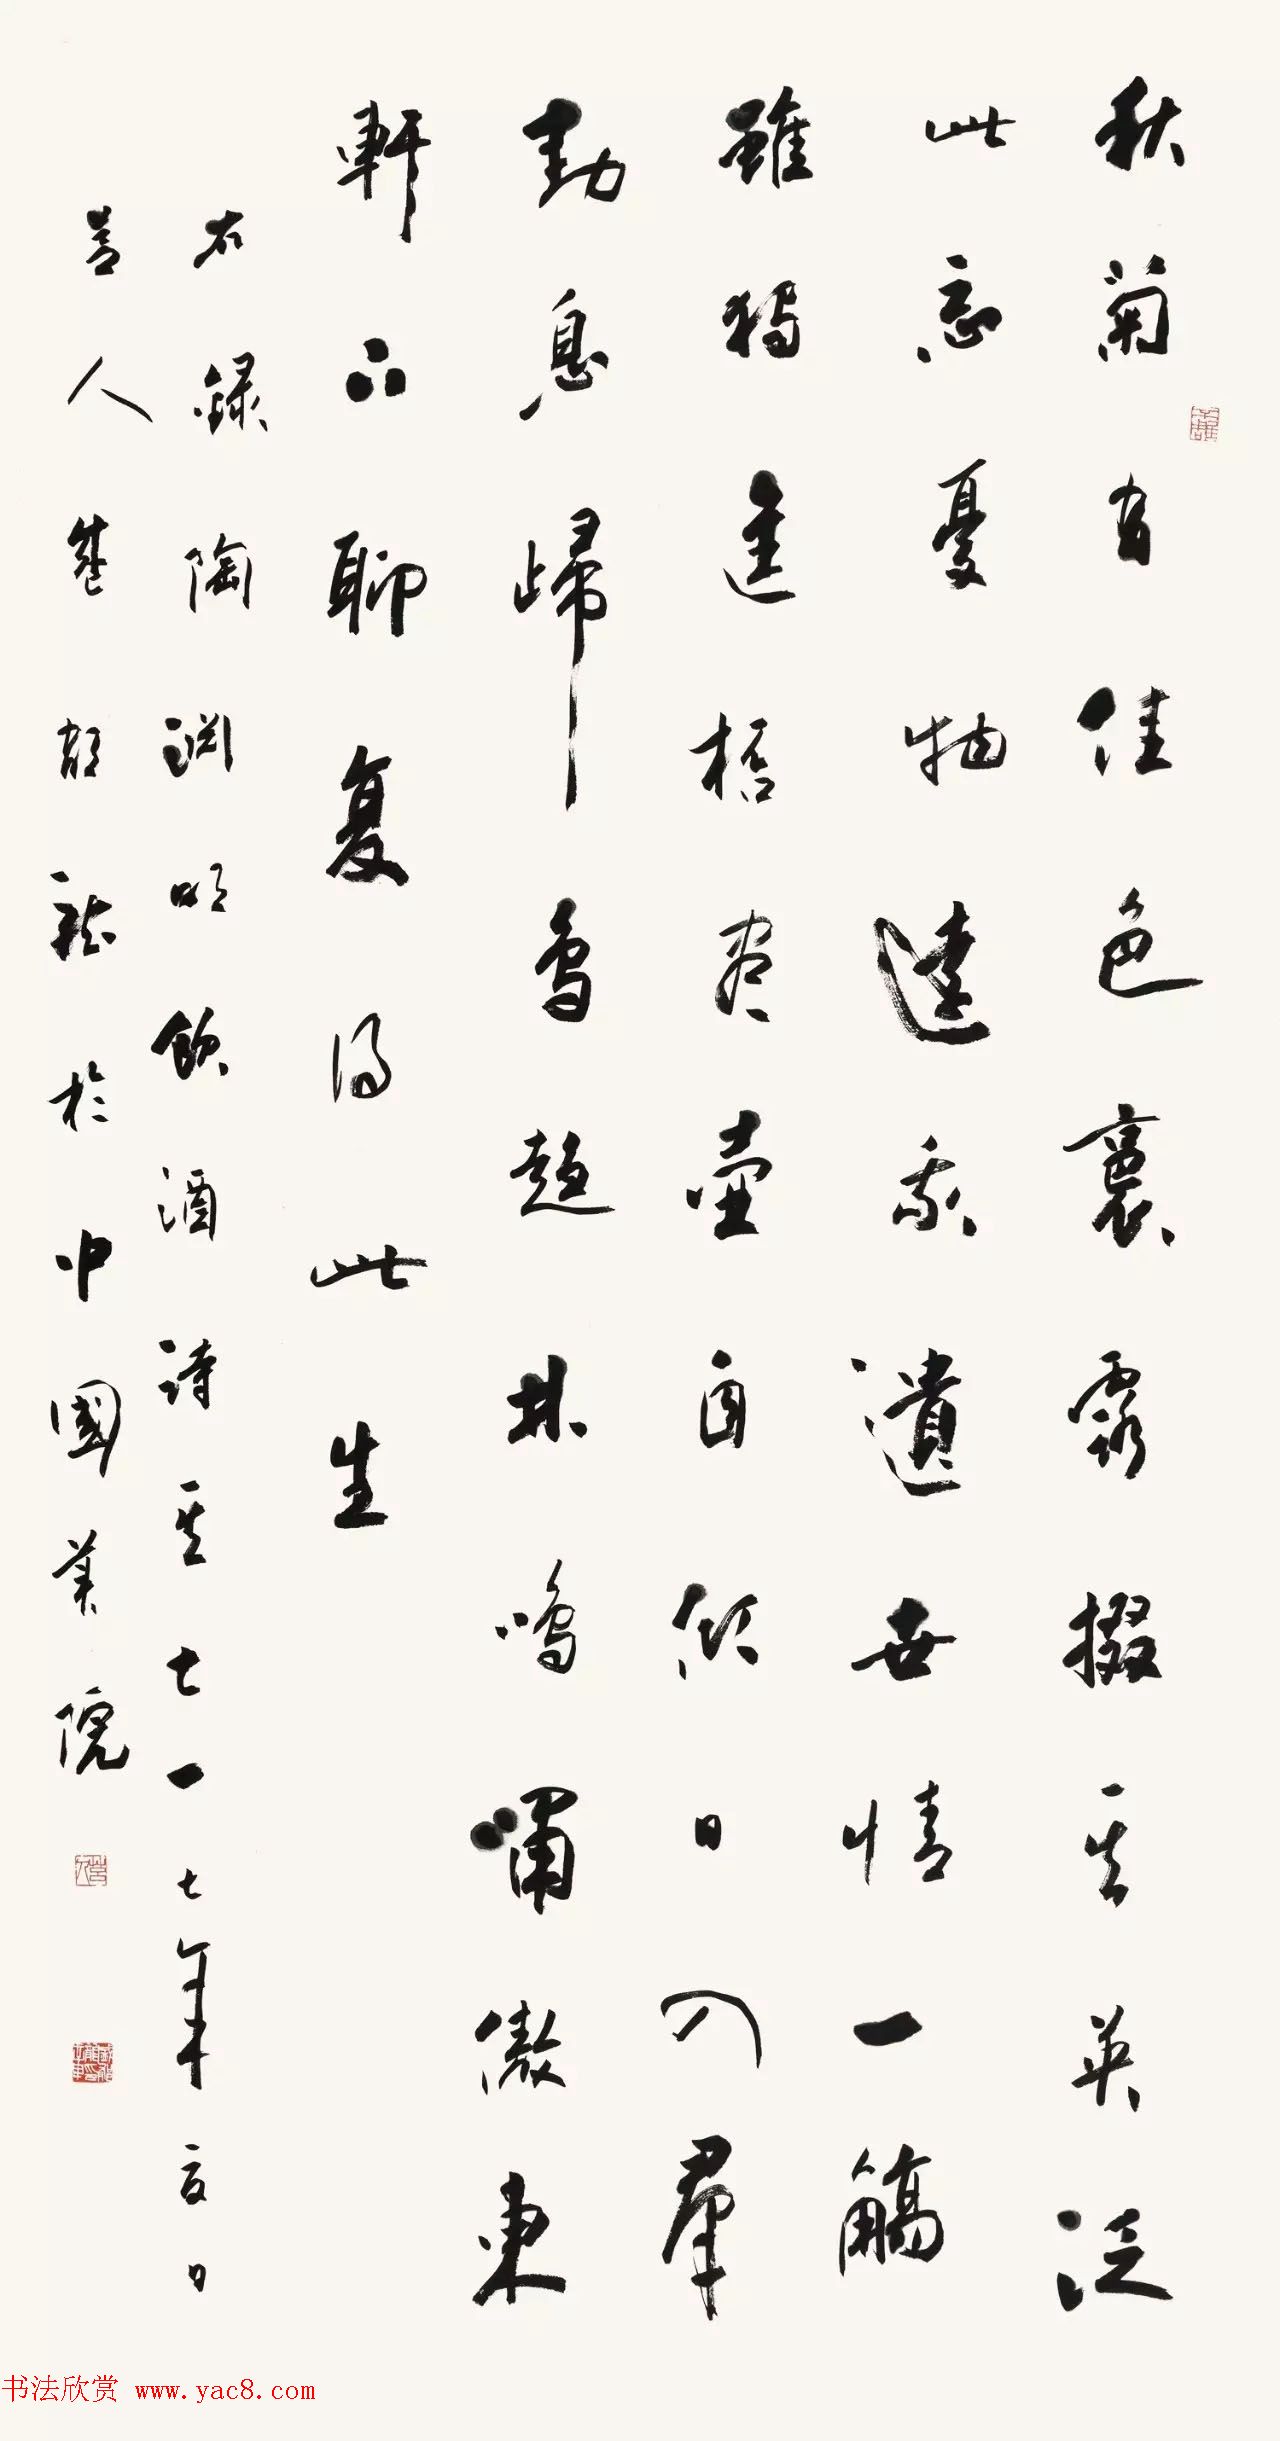 秋菊有佳色裛露掇其英泛
此忘憂物遠我遺世情一觴
雖獨進桮盡壺自傾日入羣
動息歸鳥趨林鳴嘯傲東
軒下聊复得此生
右錄陶淵明飲酒詩其七一七年夏日
人於中國美院
书法欣赏 www.yac8.com